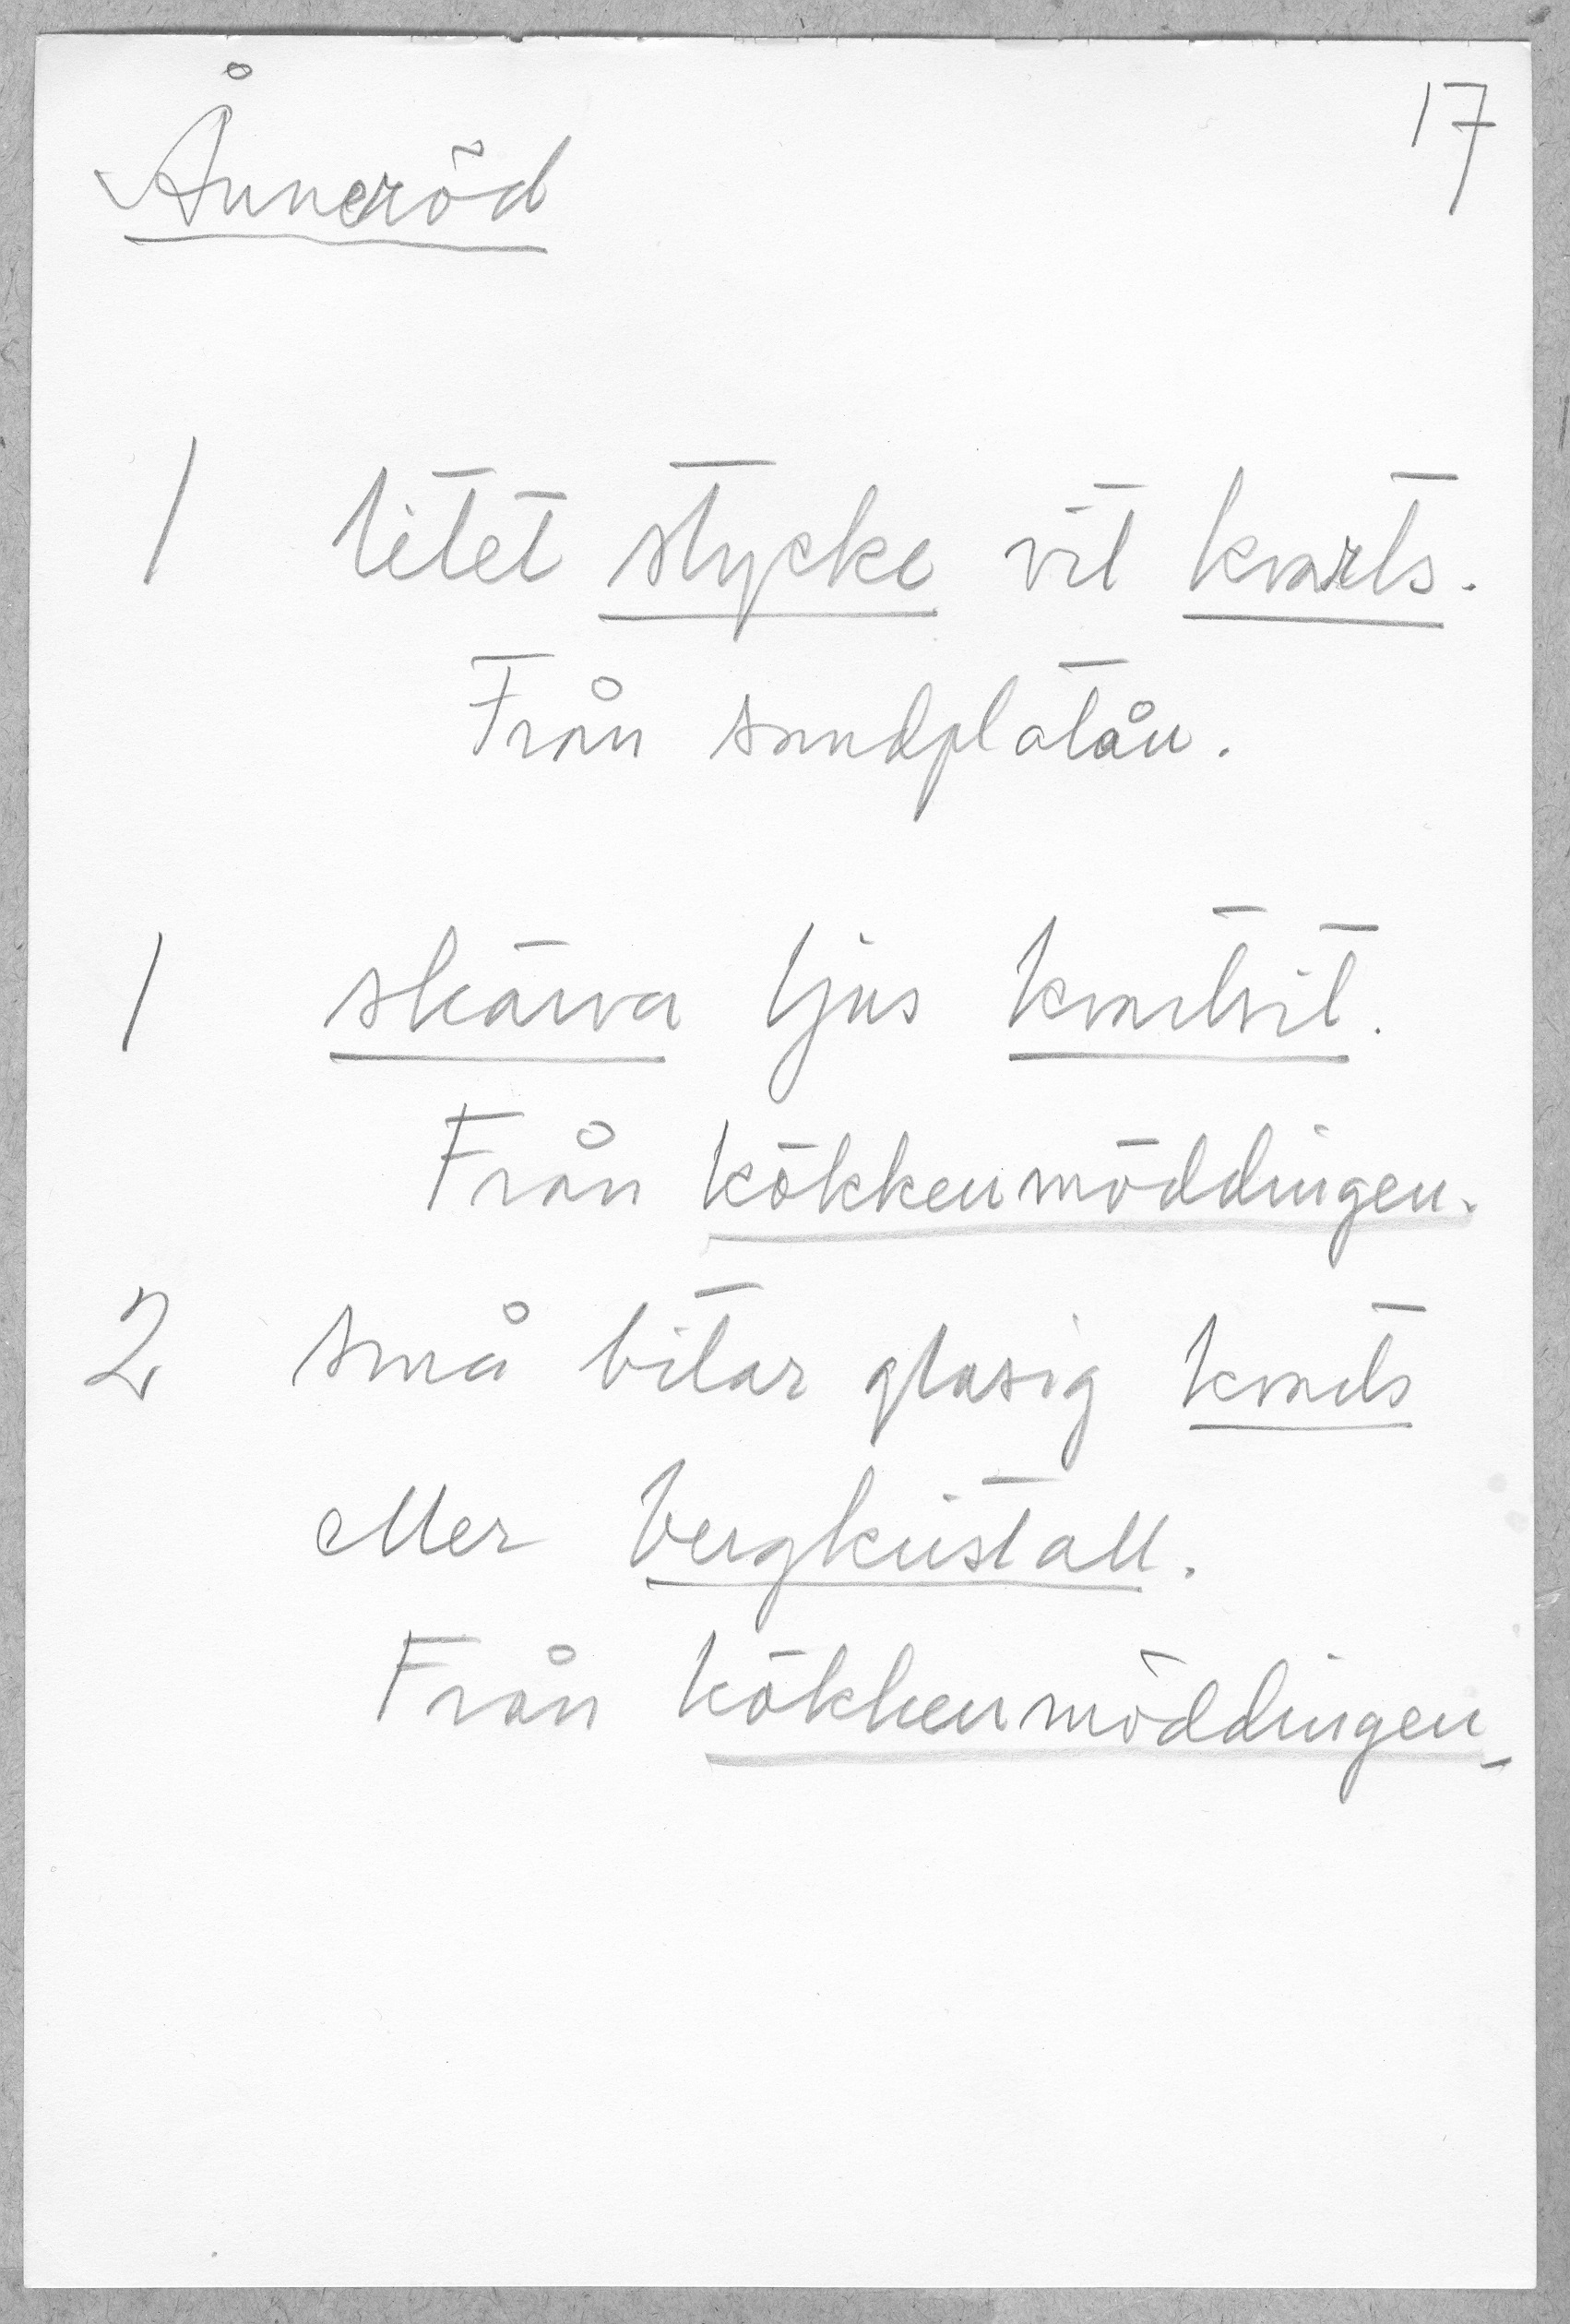 Ånneröd
17
1 litet stycke vit kvarts.
Från sandplatån.
1 skärva ljus kvartsit.
Från kökkenmöddingen.
2 små bitar glasig kvarts
eller bergkristall.
Från kökkenmöddingen.